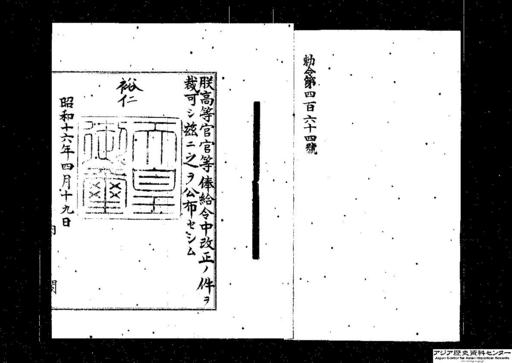 勅令第四百六十四號
朕高等官官等俸給令中改正ノ件ヲ
裁可シ茲ニ之ヲ公布セシム
裕仁
昭和十六年四月十九日
アジア歴史資料センター
Japan Center for Asian Historical Records